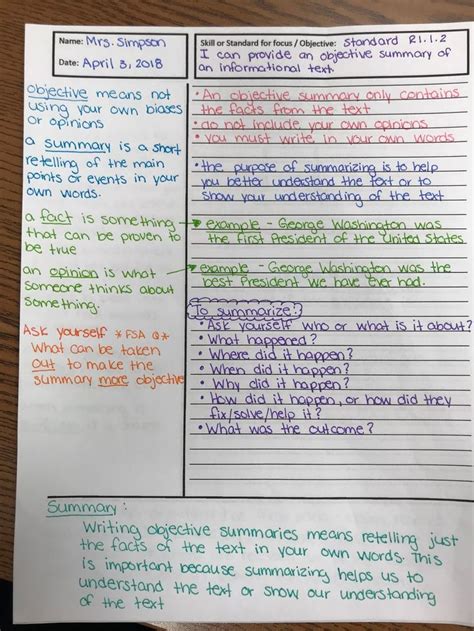 Name: Mrs. Simpson
Date: April 3, 2018
Skill or Standard for focus / Objective: Standard R1.1.2
I can provide an objective summary of
an informational text.
objective means not
using your own biases
or opinions
a summary is a short
retelling of the main
points or events in your
own words.
a fact is something
that can be proven to
be true
an opinion is what
someone thinks about
something.
Ask yourself *FSA Q*
What can be taken
out to make the
summary more objective
• An objective summary only contains
the facts from the text
• do not include your own opinions
• you must write in your own words
• the purpose of summarizing is to help
you better understand the text or to
show your understanding of the text
example - George Washington was
the first President of the United States
example - George Washington was the
best President we have ever had.
To summarize:
• Ask yourself who or what is it about?
• What happened?
• Where did it happen?
• When did it happen?
• Why did it happen?
• How did it happen, or how did they
fix/solve/help it?
• What was the outcome?
Summary:
Writing objective summaries means retelling just
the facts of the text in your own words. This
is important because summarizing helps us to
understand the text or show our understanding
of the text